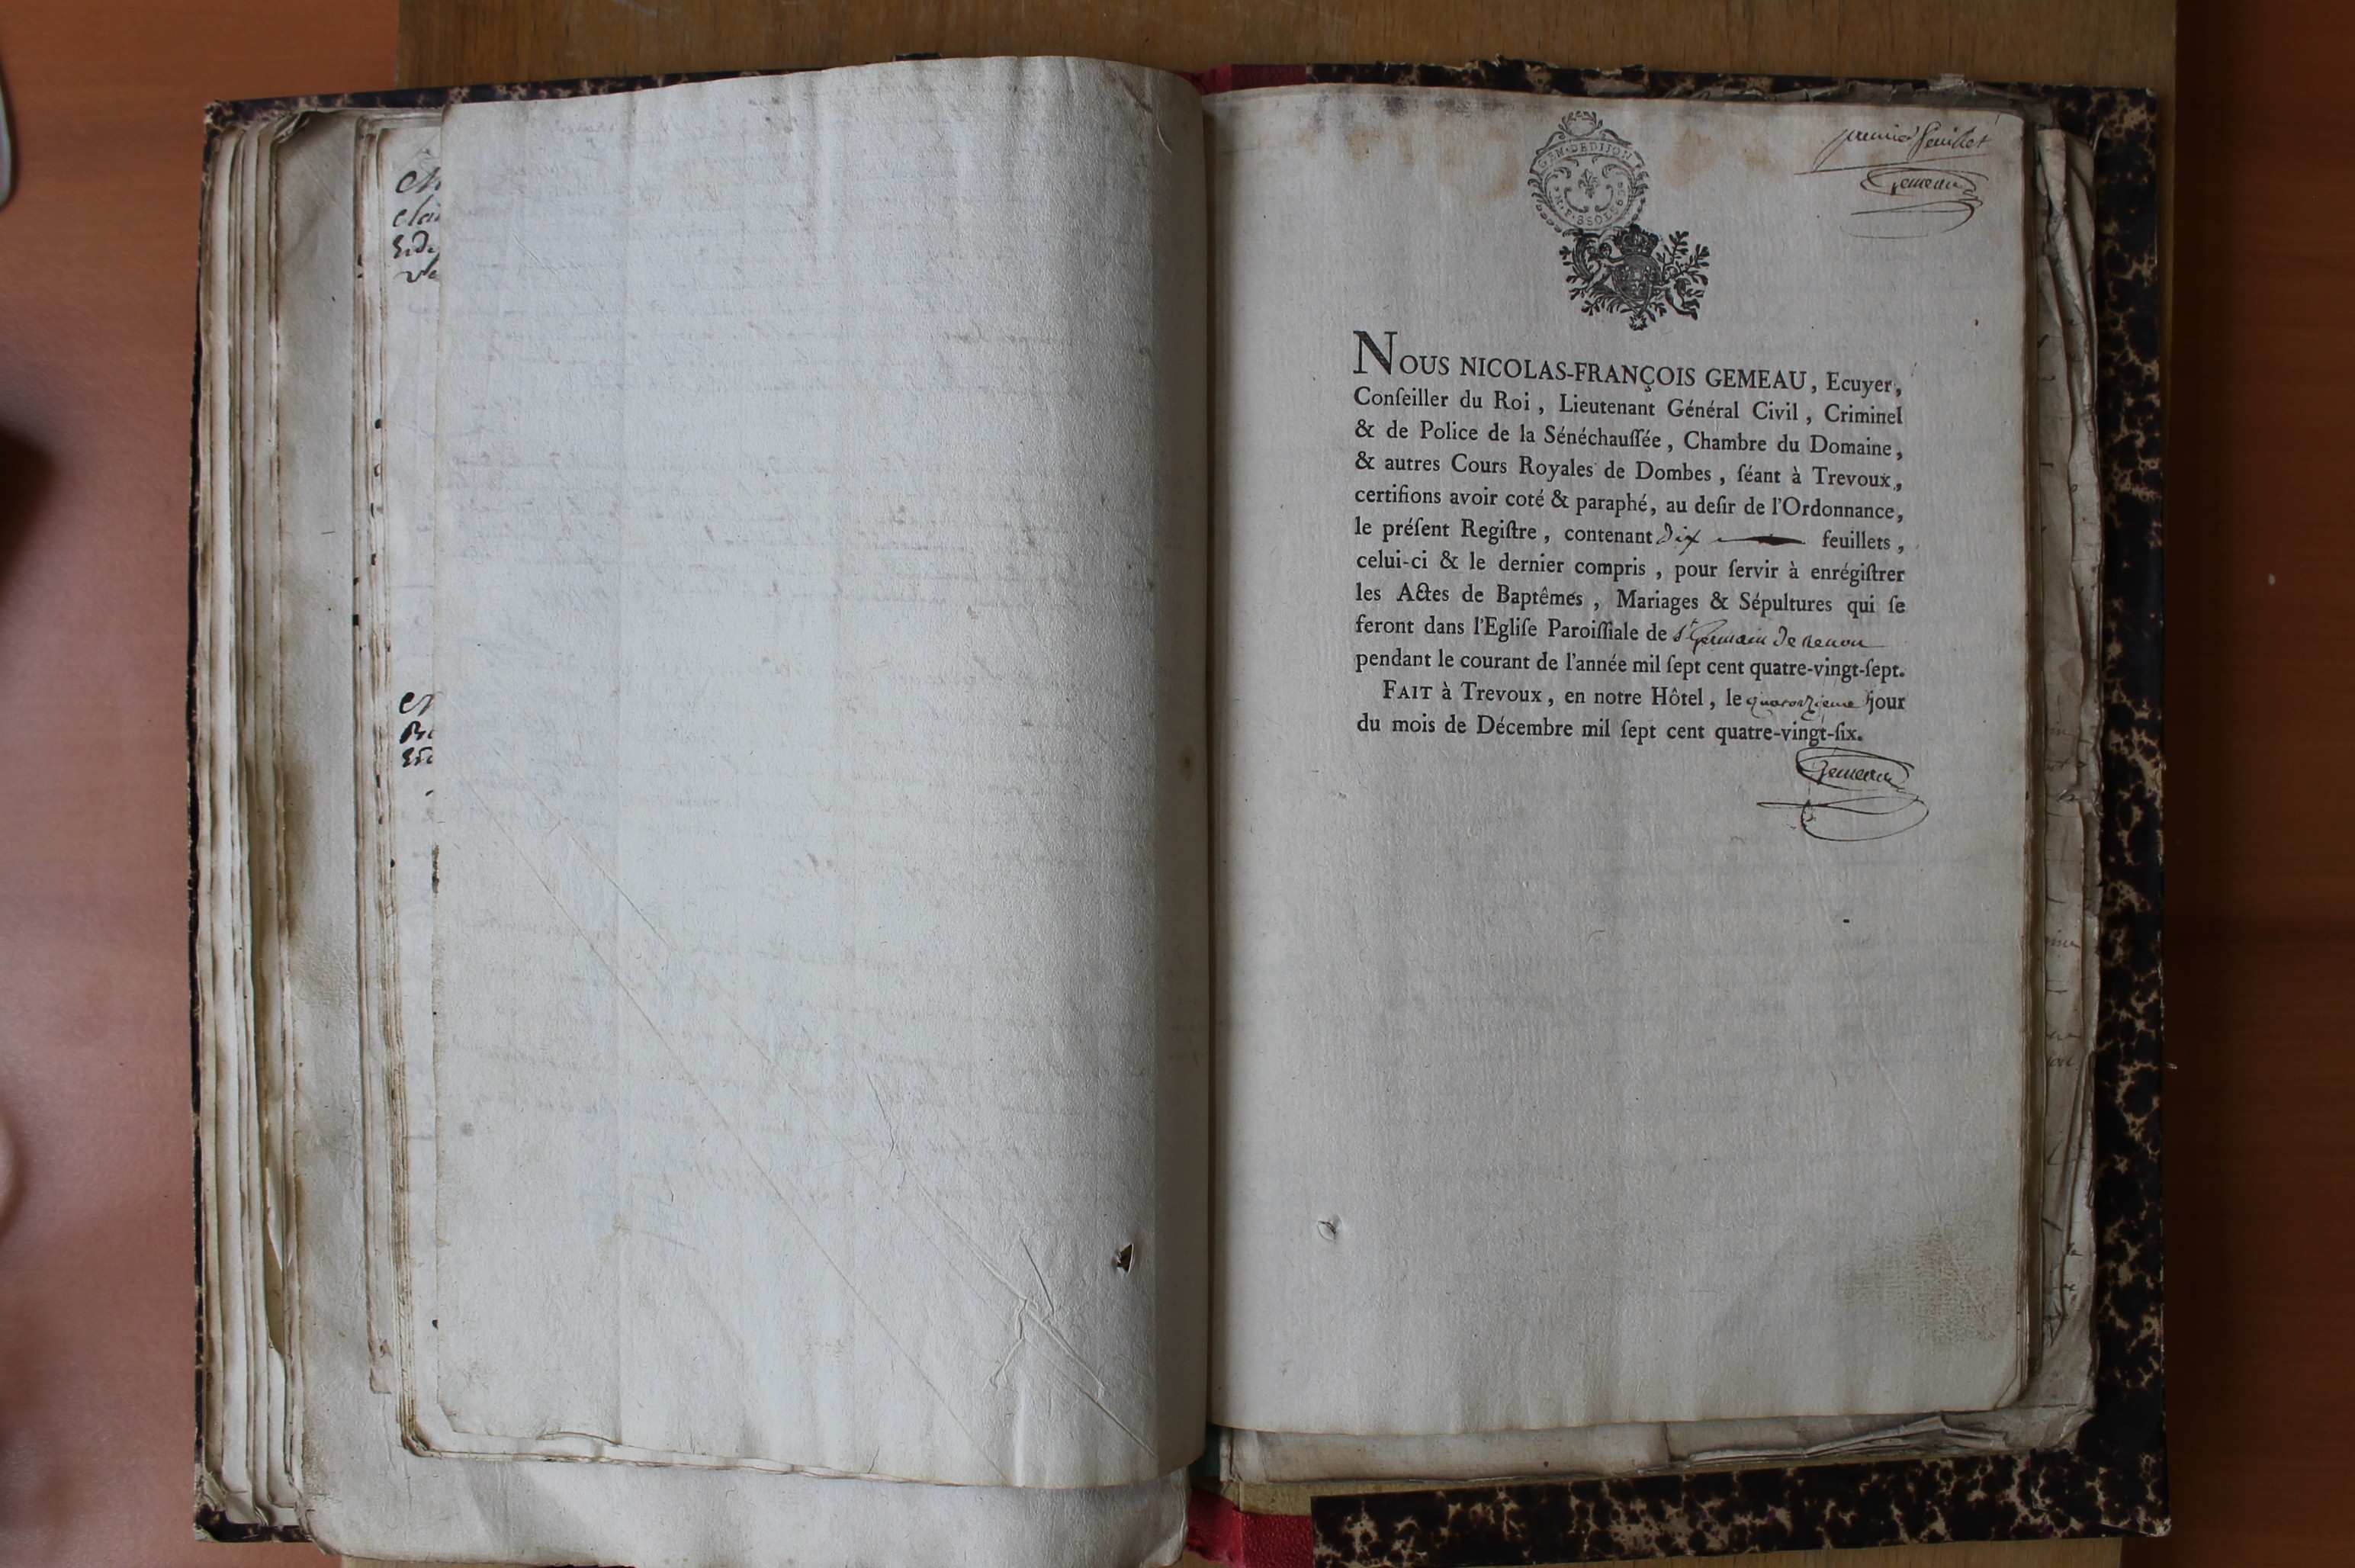 premier feuillet
Gemeau
GEN·DE DIJON
NOUS NICOLAS-FRANÇOIS GEMEAU, Ecuyer,
Conſeiller du Roi, Lieutenant Général Civil, Criminel
& de Police de la Sénéchauſſée, Chambre du Domaine,
& autres Cours Royales de Dombes, ſéant à Trevoux,
certifions avoir coté & paraphé, au deſir de l'Ordonnance,
le préſent Regiſtre, contenant dix feuillets,
celui-ci & le dernier compris, pour ſervir à enrégiſtrer
les Actes de Baptêmes, Mariages & Sépultures qui ſe
feront dans l'Egliſe Paroiſſiale de St Germain de renon
pendant le courant de l'année mil ſept cent quatre-vingt-ſept.
FAIT à Trevoux, en notre Hôtel, le quatorzieme jour
du mois de Décembre mil ſept cent quatre-vingt-ſix.
Gemeau